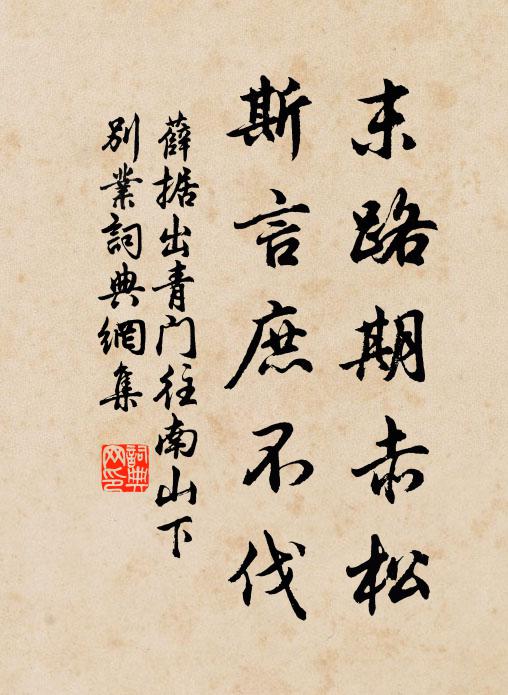 末路期赤松
斯言庶不伐
薛据出青门往南山下
别業詞典網集
詞典网印